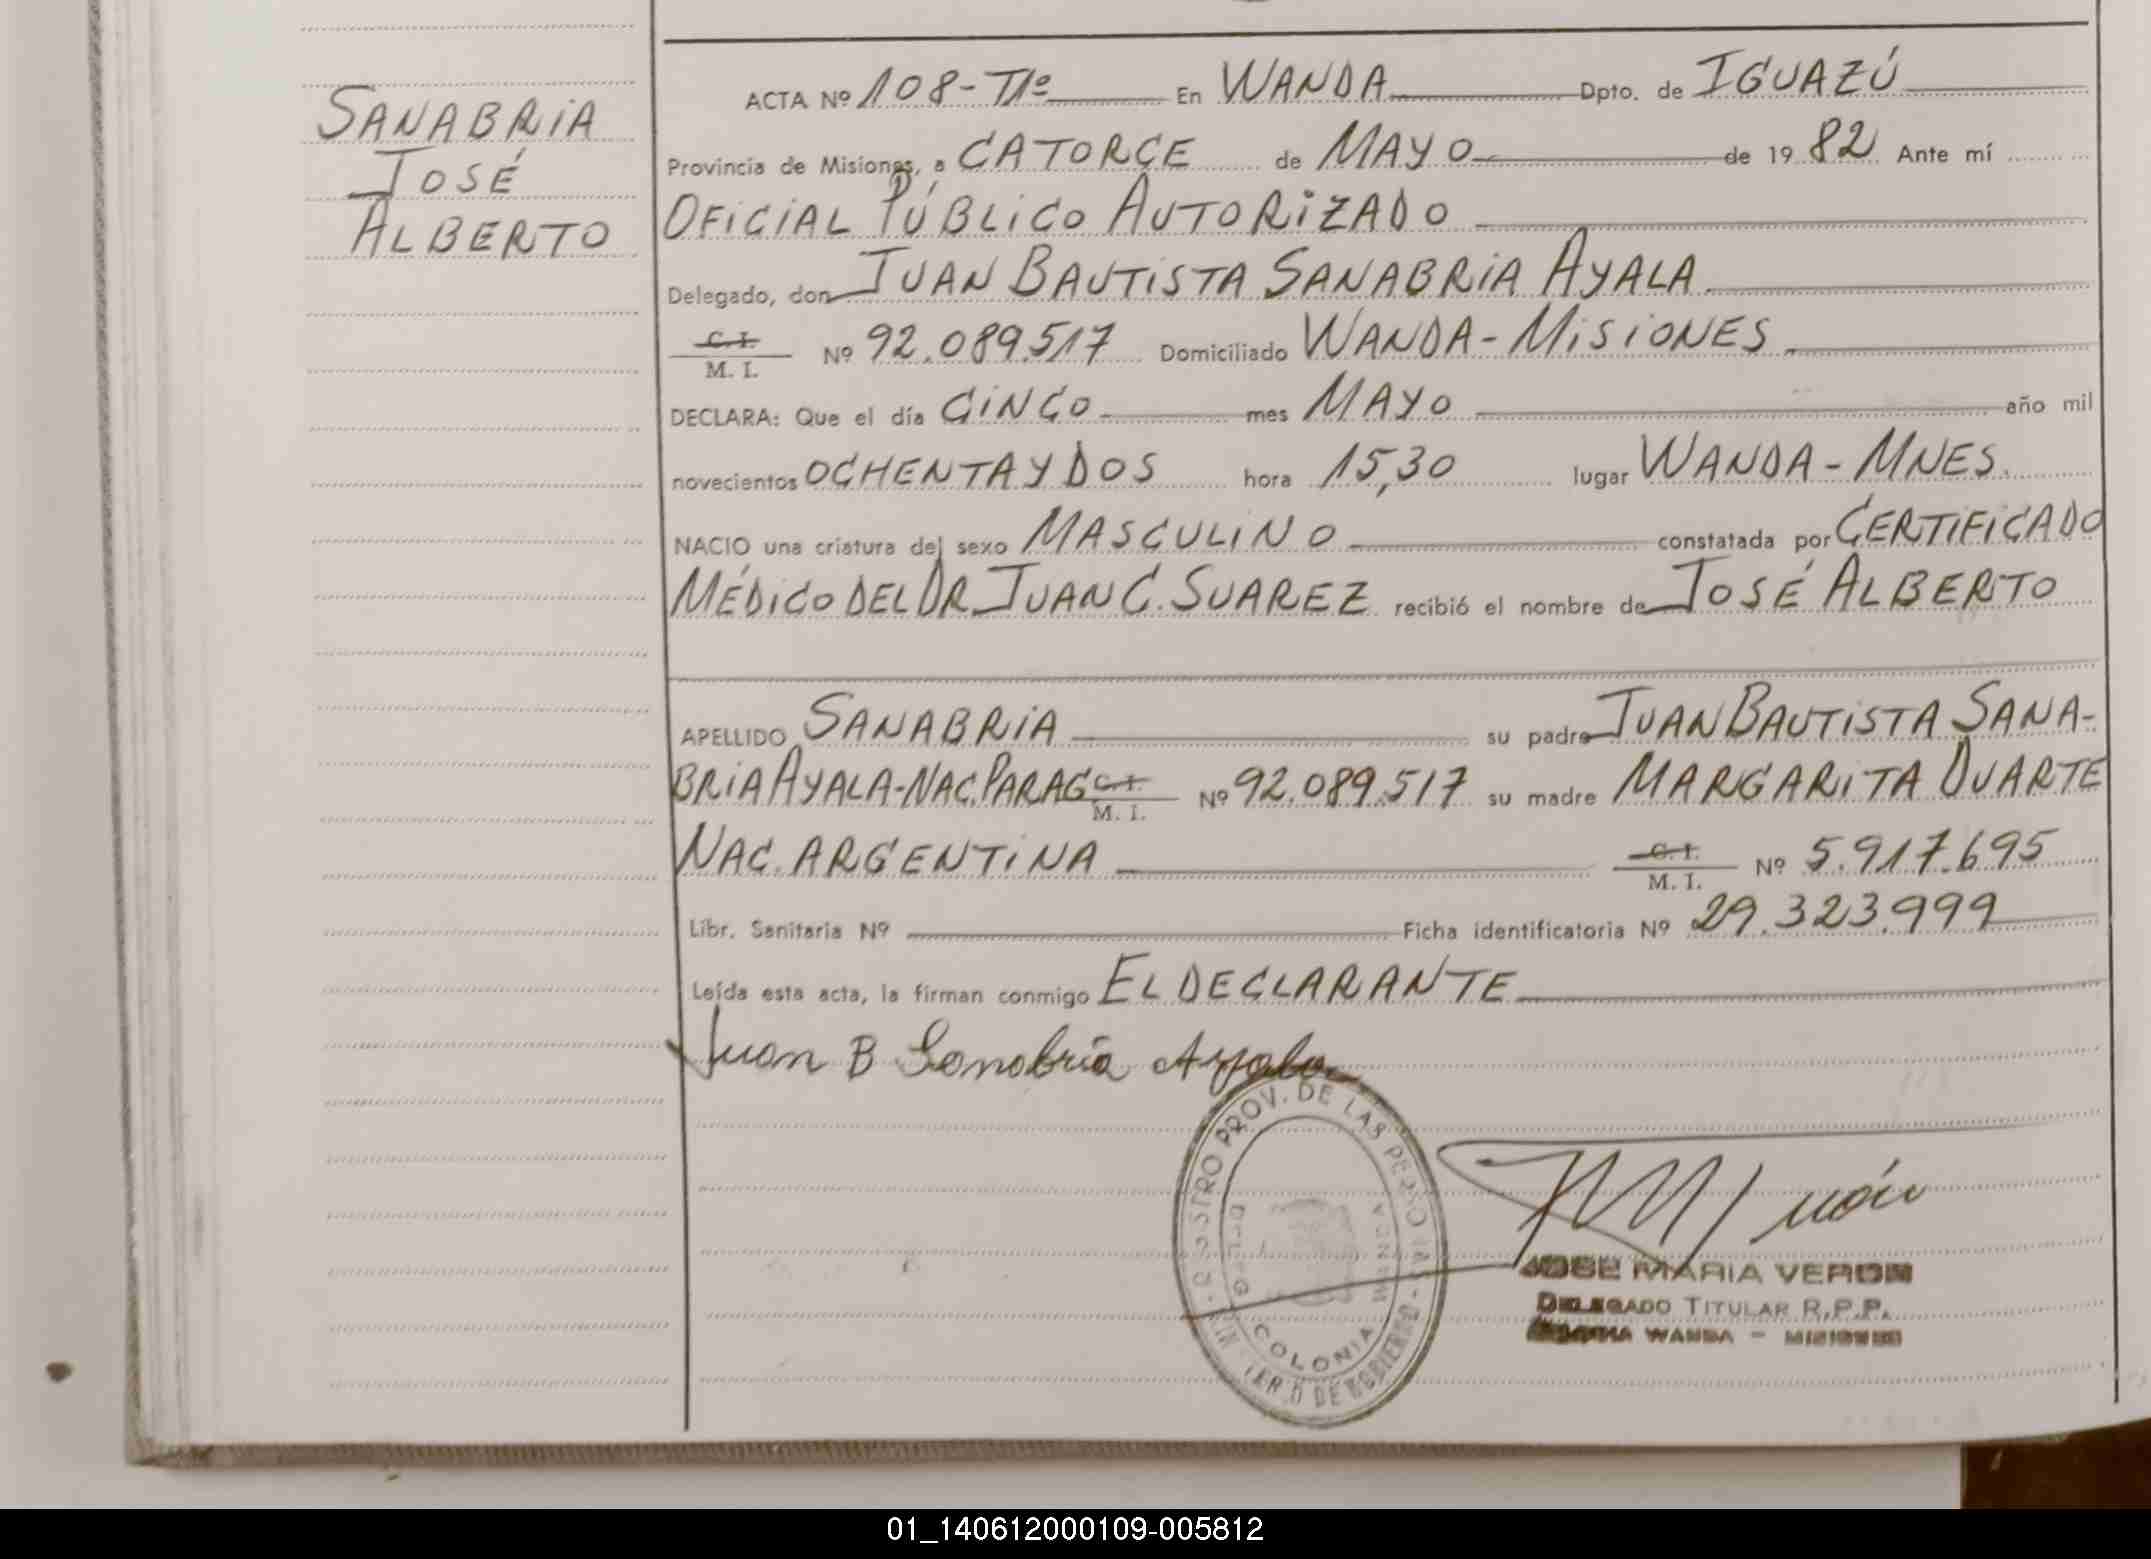 SANABRIA
JOSÉ
ALBERTO
ACTA Nº 108-T1º En WANDA Dpto. de IGUAZÚ
Provincia de Misiones, a CATORCE de MAYO de 19 82 Ante mí
OFICIAL PÚBLICO AUTORIZADO
Delegado, don JUAN BAUTISTA SANABRIA AYALA
C. I.
M. I. Nº 92.089.517 Domiciliado WANDA-MISIONES
DECLARA: Que el día CINCO mes MAYO año mil
novecientos OCHENTA Y DOS hora 15,30 lugar WANDA-MNES.
NACIO una criatura del sexo MASCULINO constatada por CERTIFICADO
MÉDICO DEL DR. JUAN C. SUAREZ recibió el nombre de JOSÉ ALBERTO
APELLIDO SANABRIA su padre JUAN BAUTISTA SANA-
BRIA AYALA-NAC. PARAG C. I.
M. I. Nº 92.089.517 su madre MARGARITA DUARTE
NAC. ARGENTINA C. I.
M. I. Nº 5.917.695
Libr. Sanitaria Nº Ficha identificatoria Nº 29.323.999
Leída esta acta, la firman conmigo EL DECLARANTE
Juan B Sanabria Ayala
PROV. DE LAS PERSONAS
COLONIA
WANDA
DE GOBIERNO
JOSE MARIA VERON
DELEGADO TITULAR R.P.P.
WANDA - MISIONES
01_140612000109-005812